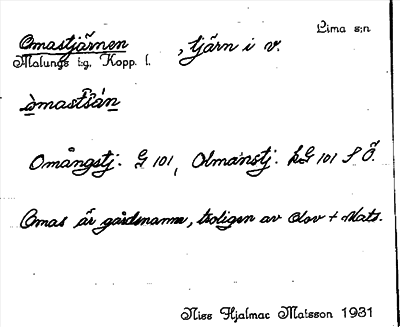 Lima s:n
Omastjärnen , tjärn i v.
Malungs t:g. Kopp. l.
Omångstj. G 101, Olmånstj. hG 101 S Ö.
Omas är gårdsnamn, troligen av Olov + Mats.
Nils Hjalmar Matsson 1931